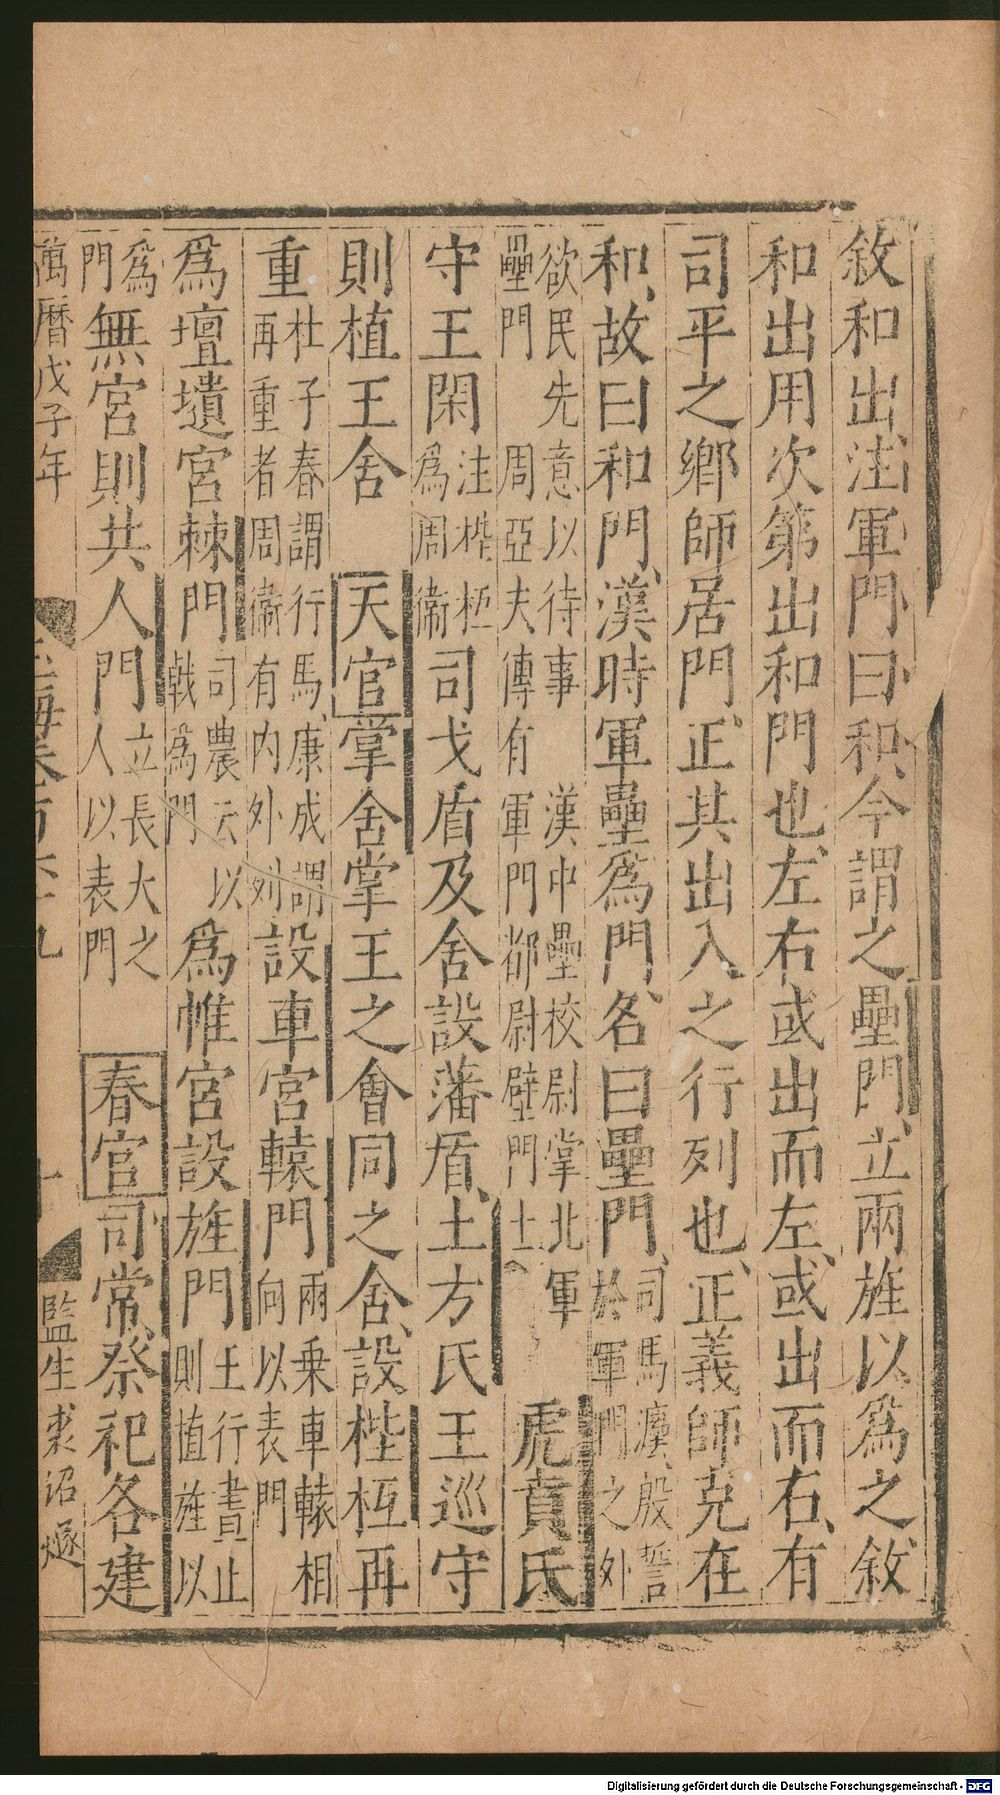 敘和出注軍門曰和今謂之壘門立兩旌以爲之敘
和出用次第出和門也左右或出而左或出而右有
司平之鄉師居門正其出入之行列也正義師克在
和故曰和門漢時軍壘爲門名曰壘門司馬灋殷誓於軍門之外
欲民先意以待事 漢中壘校尉掌北軍
壘門 周亞夫傳有軍門都尉壁門士 虎賁氏
守王閑注梐枑爲周衞司戈盾及舍設藩盾土方氏王巡守
則植王舍 天官掌舍掌王之會同之舍設梐枑再
重杜子春謂行馬康成謂再重者周衞有内外列設車宮轅門兩乗車轅相向以表門
爲壇壝宮棘門司農云以戟爲門爲帷宮設旌門王行晝止則植旌以
爲門無宮則共人門立長大之人以表門 春官司常祭祀各建
萬曆戊子年 玉海卷百六十九 十 監生裘詔
Digitalisierung gefördert durch die Deutsche Forschungsgemeinschaft - DFG